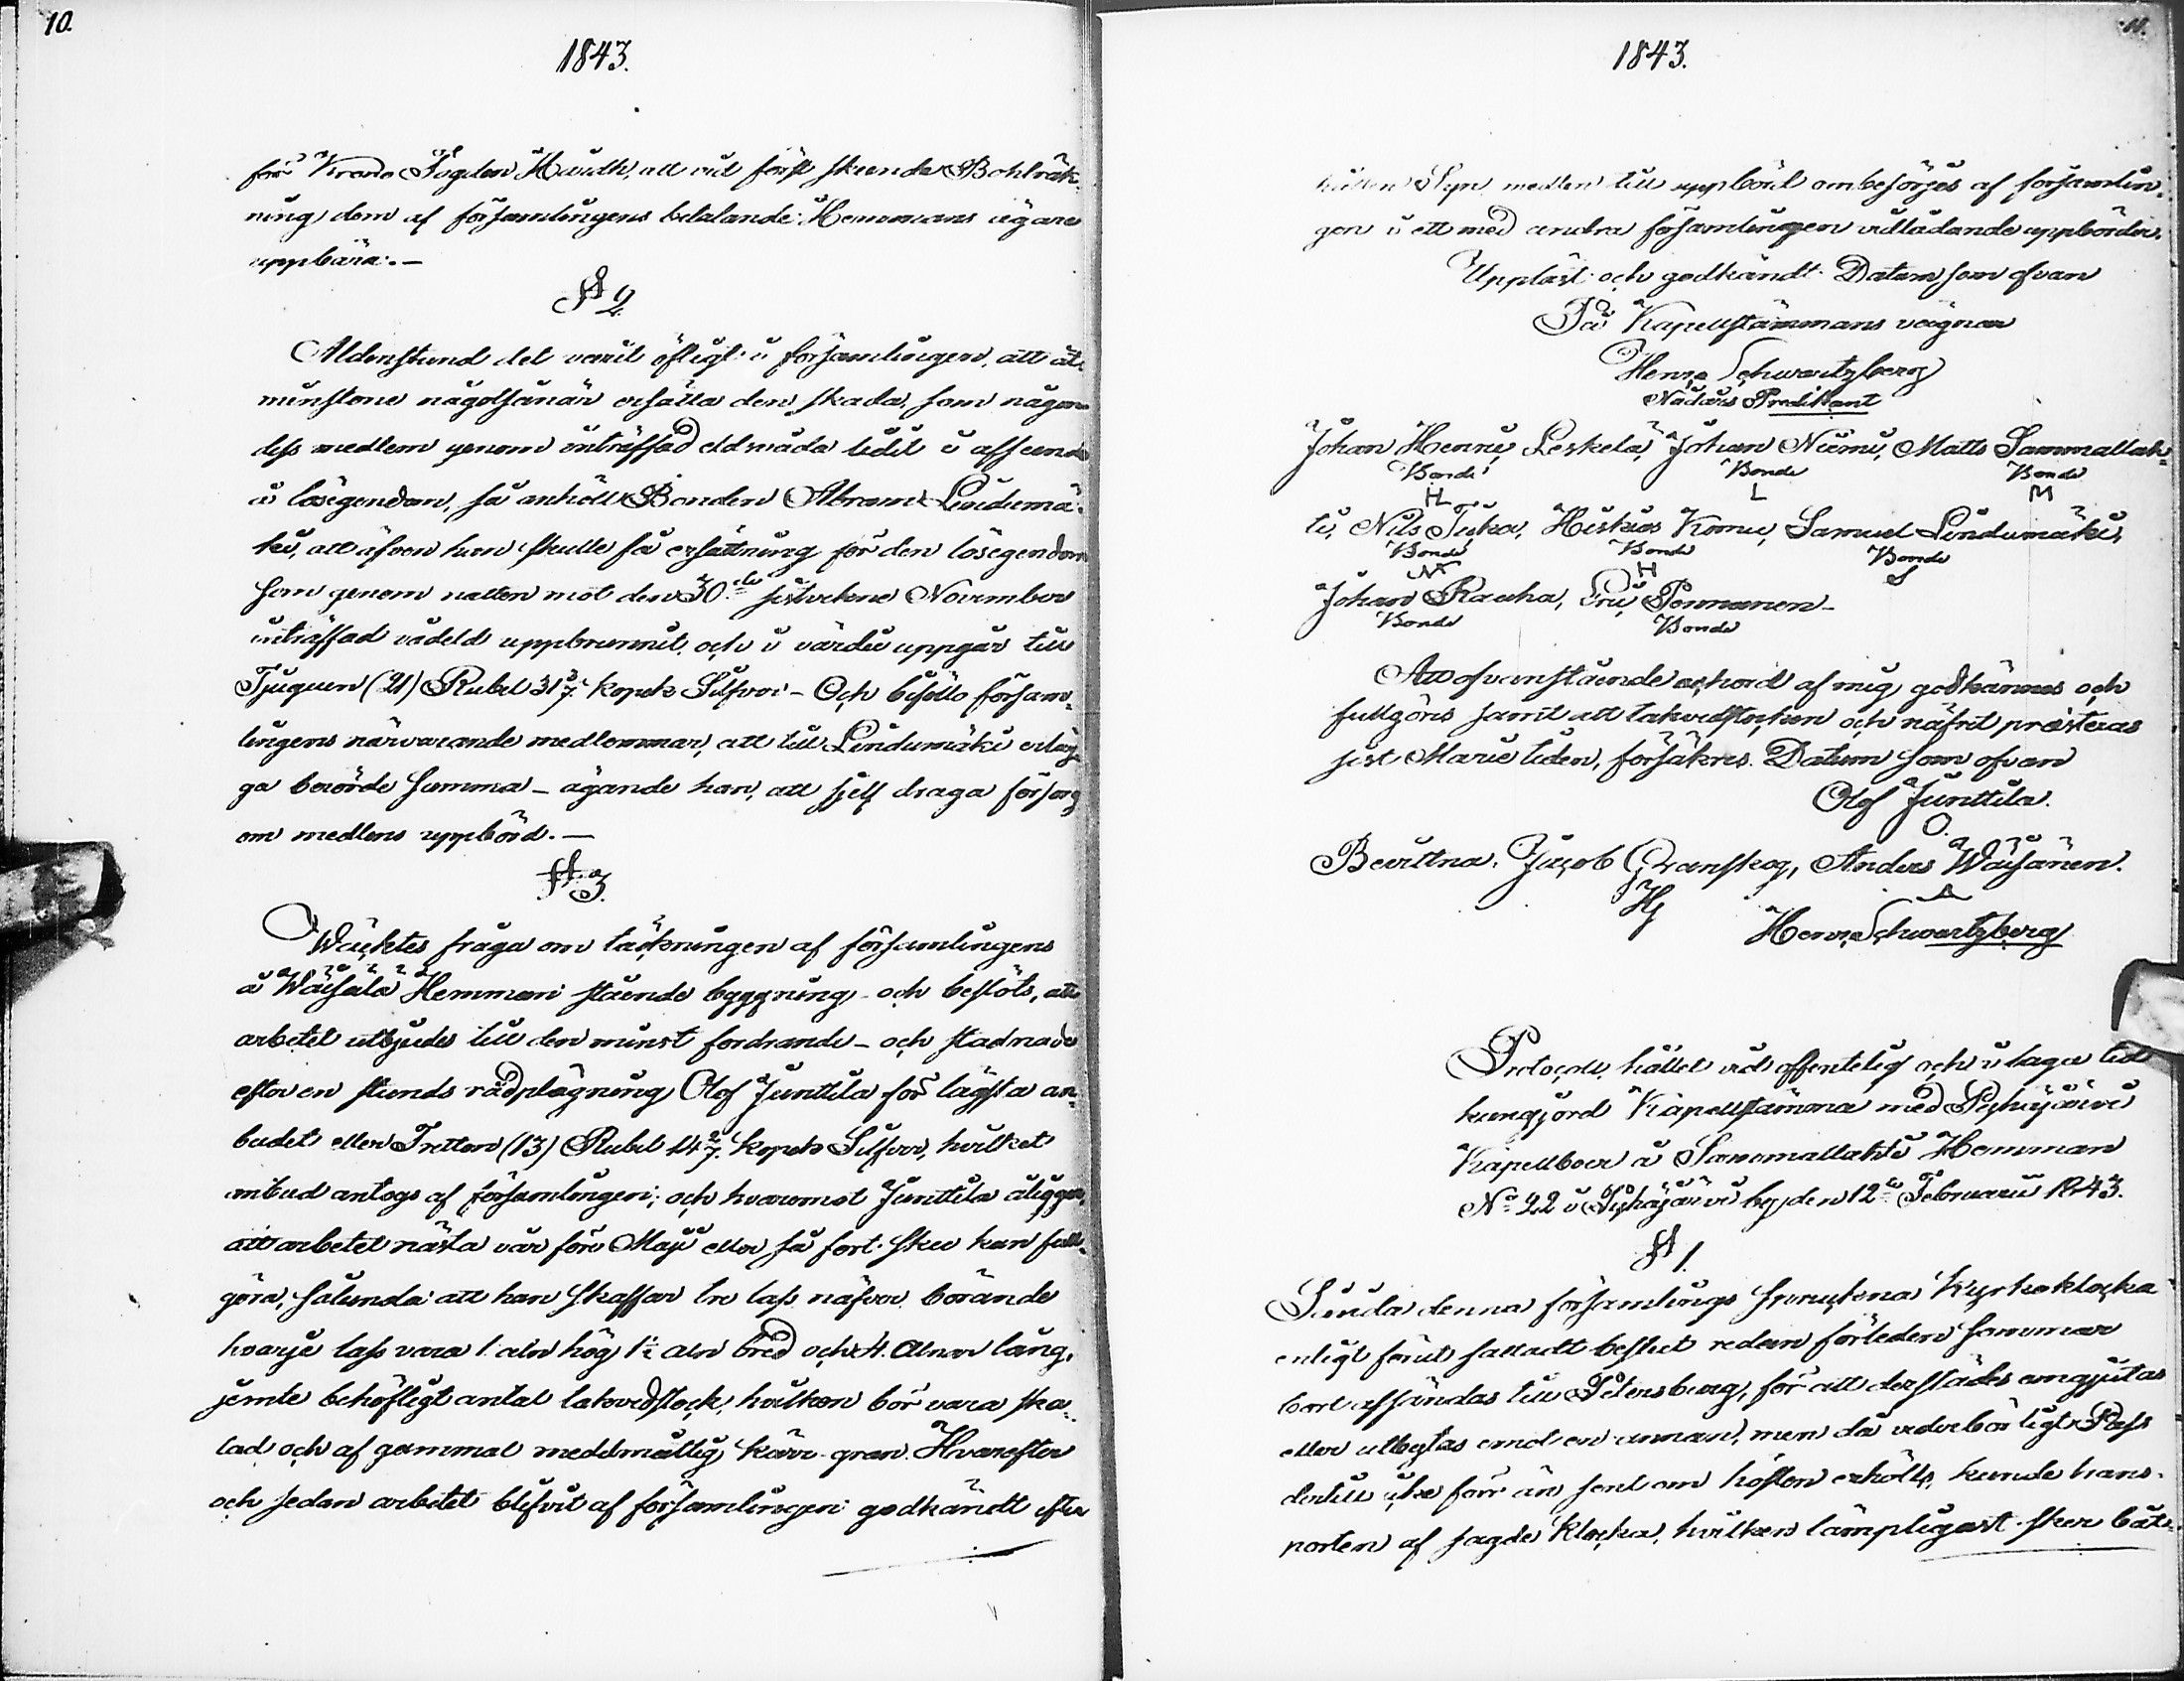 10.
1843.
för Krono Fogden Høudh, att vid först skeende Bohlräk-
ning dem af församlingens betalande Hemmans ägare
uppbära.—
§ 2
Aldenstund det varit öfligt i församlingen, att åt-
minstone någotsånär ersätta den skada, som någon
dess medlem genom inträffad eldsvåda lidit i afseende
å lösegendom, så anhöll Bonden Abram Lindumä-
ki, att äfven han skulle få ersättning för den lösegendom
som genom natten mot den 30de sistvekne November
inträffad vådeld uppbrunnit och i värde uppgår till
Tjuguen (21) Rubel 31 3/7 kopek Silfver - Och beslöto försam-
lingens närvarande medlemmar, att till Lindumäki erläg-
ga berörde summa - ägande han, att sjelf draga försorg
om medlens uppbörd.—
§ 3.
Wäcktes fråga om täckningen af församlingens
å Wäisälä Hemman stående byggning - och beslöts, att
arbetet utbjudes till den minst fordrande - och stadnade
efter en stunds rådplägning Olof Junttila för lägsta an-
budet eller Tretton (13) Rubel 14 2/7 kopek Silfver, hvilket
anbud antogs af församlingen; och hvaremot Junttila åligger,
att arbetet nästa vår före Maji eller så fort ske kan full-
göra, sålunda att han skaffar tre lass näfver börande
hvarje lass vara 1 aln hög 1½ aln bred och 4. Alnar lång,
jemte behöfligt antal takvedstock, hvilken bör vara ska-
lad och af gammal medelmåttig kärr gran. Hvarefter
och sedan arbetet blifvit af församlingen godkändt efter
11.
1843.
hållen Syn medlen till uppbörd ombesörjes af församlin-
gen i ett med andra församlingen vidlådande uppbörder.
Uppläst och godkändt. Datum som ofvan
På Kapellstämmans vägnar
Henr Schwartzberg
Nådårs Predikant
Johan Henric Leskelä, Johan Niemi, Matts Sammallah-
Bonde Bonde Bonde
H L M
ti, Nils Tuka, Hiskias Komu, Samuel Lindumäki,
Bonde Bonde Bonde
N H S
Johan Rauha, Eric Ponnanen-
Bonde Bonde
Att ofvanstående ackord af mig godkännes och
fullgöres samt att takvedstocken och näfret presteras
sist Marie tiden, försäkres. Datum som ofvan
Olof Junttila.
O.
Bevittna. Jacob Granskog, Anders Wäisänen.
A
Henr Schwartzberg
Protocoll, hållet vid offentelig och i laga tid
kungjord Kapellstämma med Pyhäjärvi
Kapellboer å Sammallahti Hemman
No 22 i Pyhäjärvi by den 12te Februarii 1843.
§ 1.
Skulle denna församlings spruckna Kyrkoklocka
enligt förut fattadt beslut redan förleden sommar
bort afsändas till Petersburg, för att derstädes omgjutas
eller utbytas emot en annan, men då vederbörligt Pass
dertill icke förr än sent om hösten erhölts, kunde trans-
porten af sagde klocka, hvilken lämpligast sker båt-